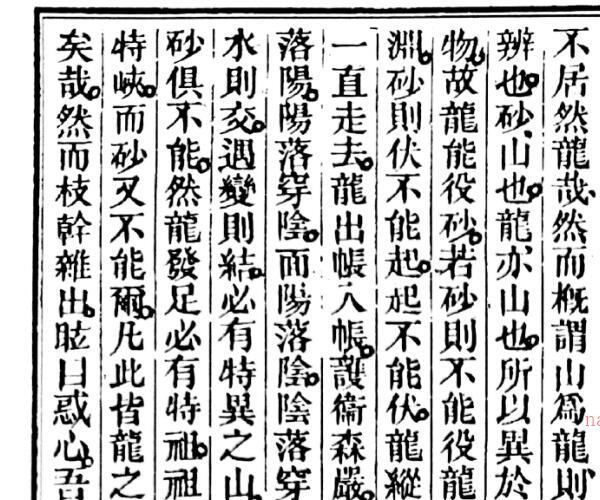 不居然龍哉、然而概謂山爲龍則
辨也。砂、山也。龍亦山也。所以異於
物。故龍能役砂。若砂則不能役龍
淵。砂則伏不能起。起不能伏。龍縱
一直走去。龍出帳入帳。護衞森嚴。
落陽。陽落穿陰。而陽落陰。陰落穿
水則交。遇變則結。必有特異之山
砂俱不能。然龍發足必有特祖。祖
特峽。而砂又不能爾。凡此皆龍之
矣哉。然而枝幹雜出。眩目惑心。吾